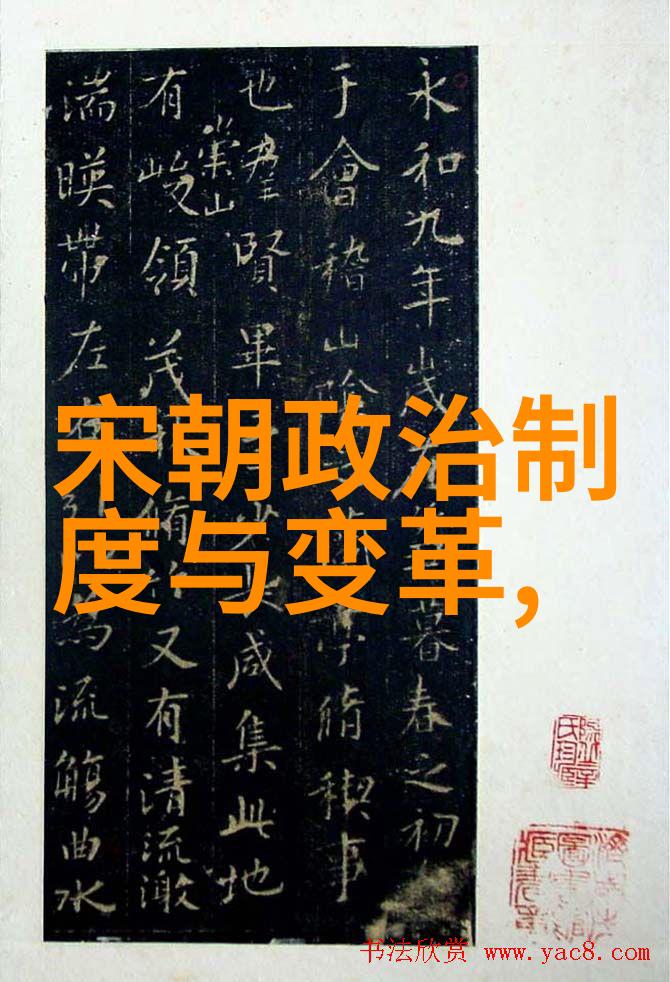 永和九年歲暮春之初
于會稽山陰脩稧事
也羣賢畢少咸集此地
崇山
有峻領茂脩又有清流激
湍暎帶左為流觴曲水
宋朝政治制
度与变革，
书法欣赏 www.yac8.com